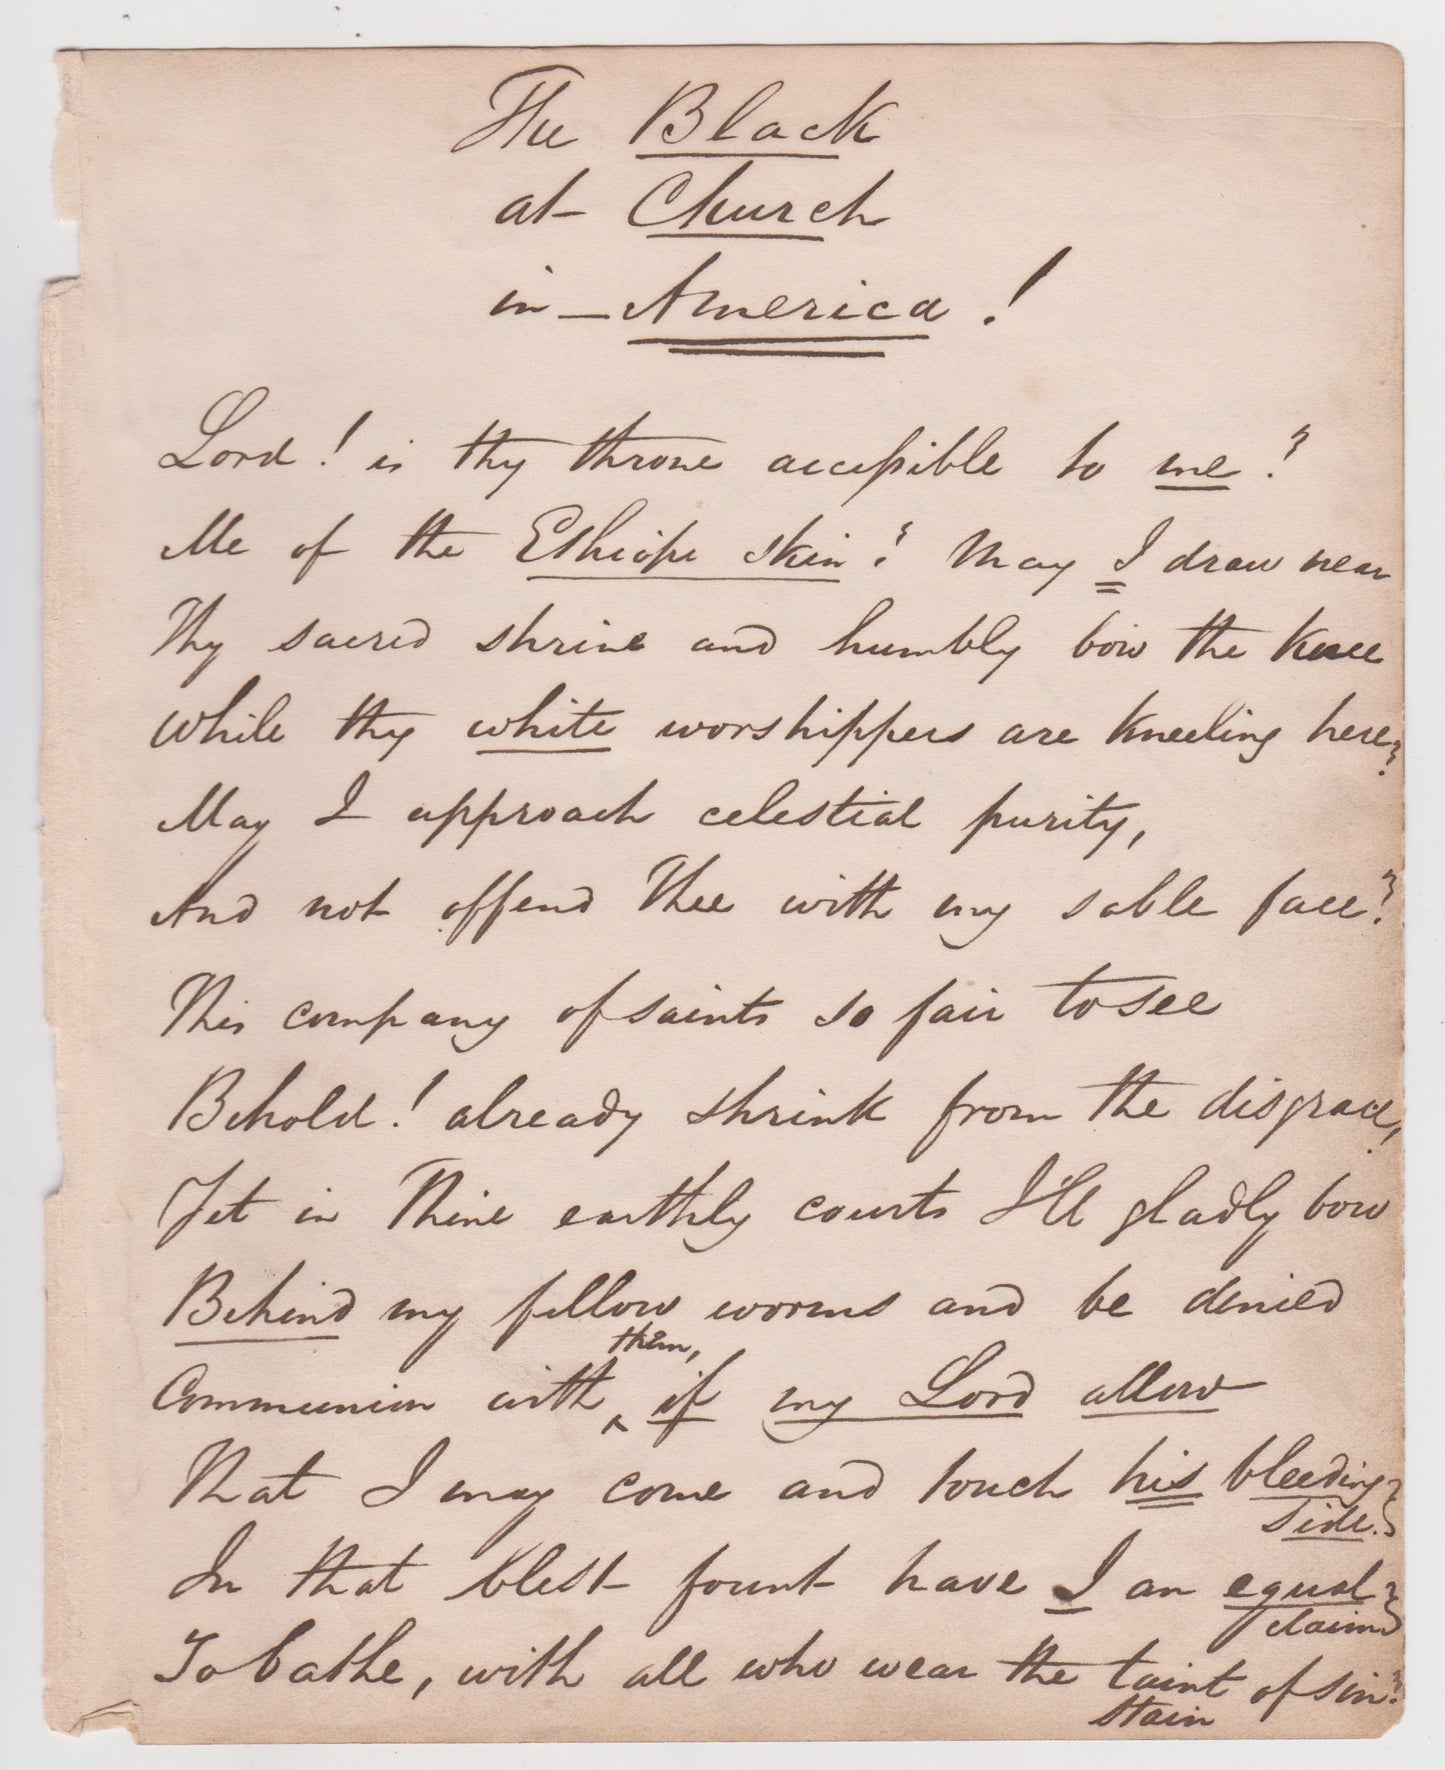 The Black
at Church
in — America!
Lord! is thy throne accessible to me?
Me of the Ethiope skin? May I draw near
Thy sacred shrine and humbly bow the knee
While thy white worshippers are kneeling here?
May I approach celestial purity,
And not offend Thee with my sable face?
This company of saints so fair to see
Behold! already shrink from the disgrace,
Yet in Thine earthly courts I'll gladly bow
Behind my fellow worms and be denied
them,
Communion with ^ if my Lord allow
That I may come and touch his bleeding
side.
In that blest fount have I an equal
claim
To bathe, with all who wear the taint of sin?
stain